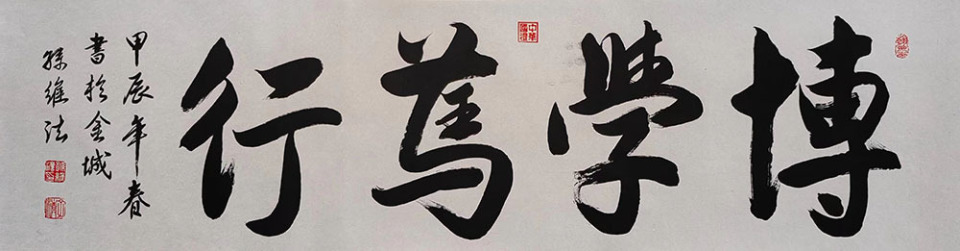 博學篤行
甲辰年春
書於金城
孫維法